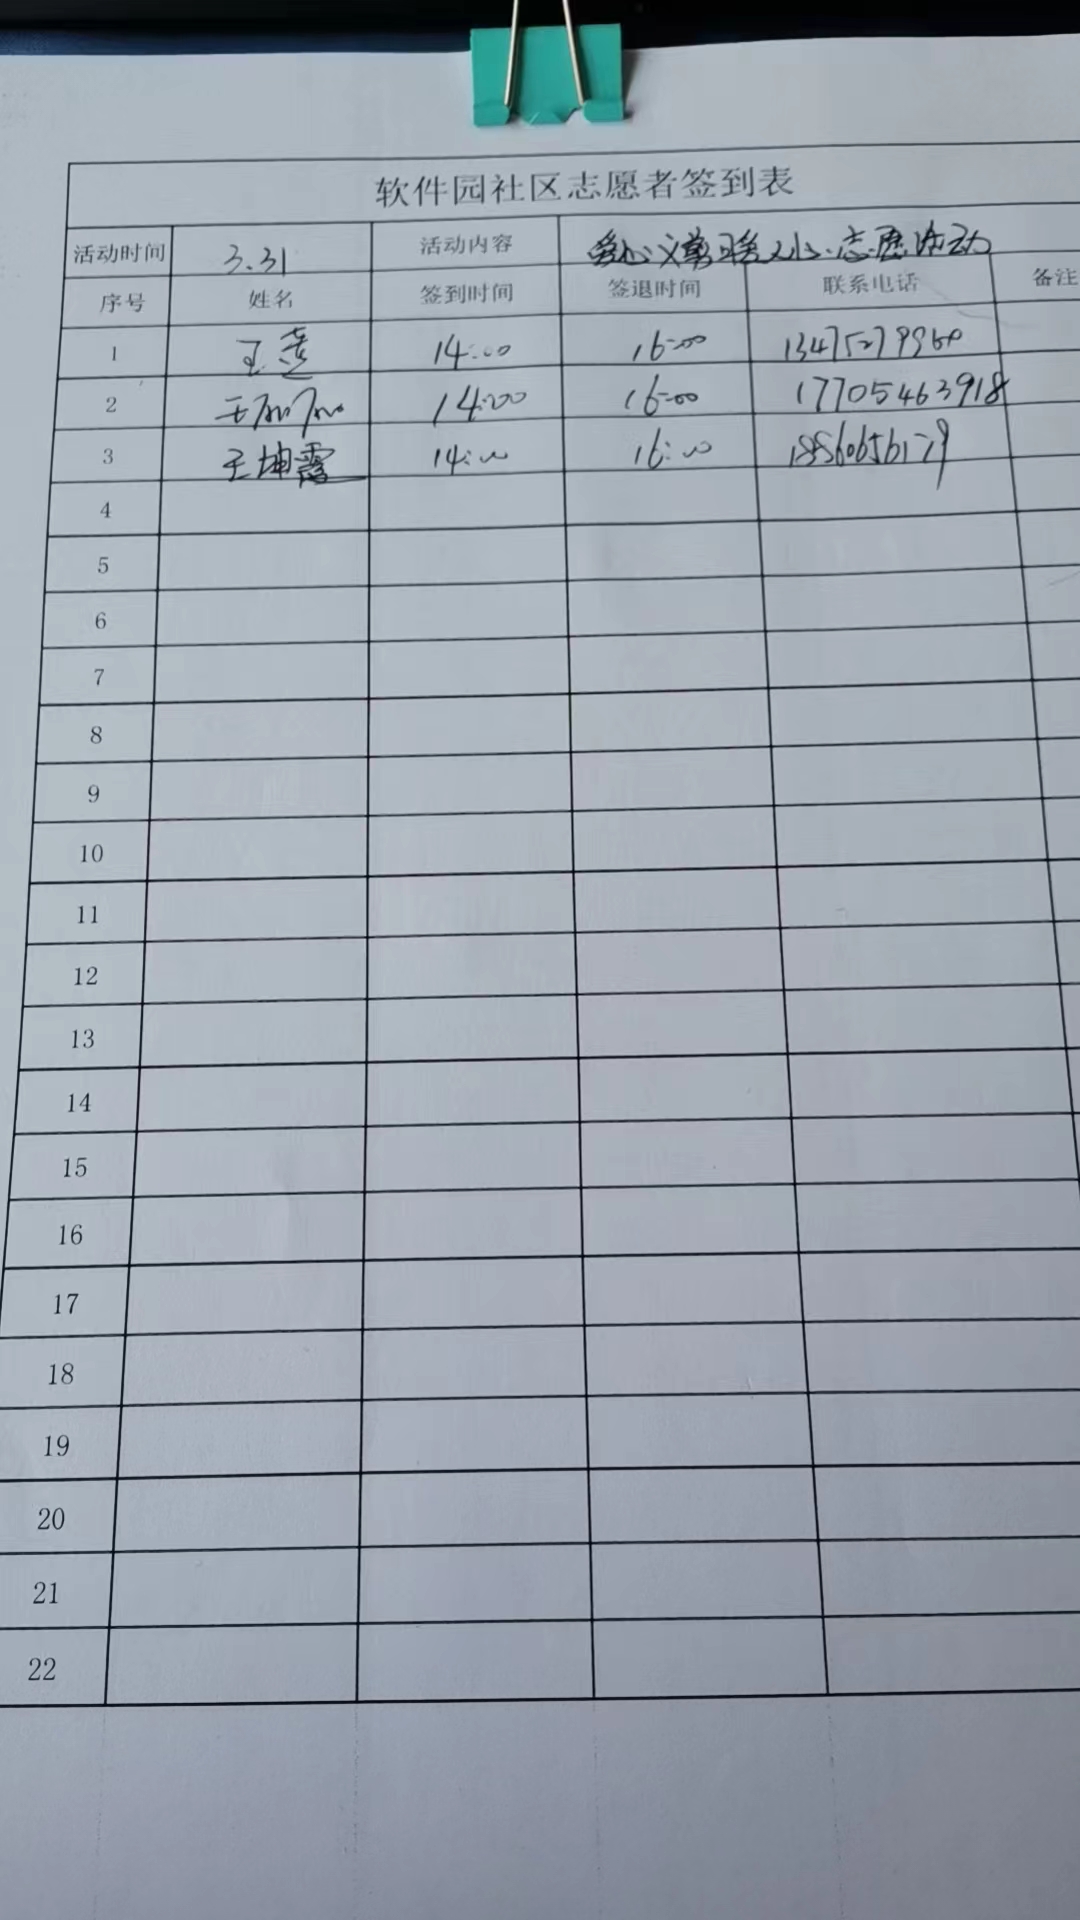 软件园社区志愿者签到表
活动时间 3.31 活动内容 爱心义剪暖人心志愿活动
序号 姓名 签到时间 签退时间 联系电话 备注
1 王 14:00 16:00
2 王丽丽 14:00 16:00 17705463918
3 王坤霞 14:00 16:00 18560656179
4
5
6
7
8
9
10
11
12
13
14
15
16
17
18
19
20
21
22